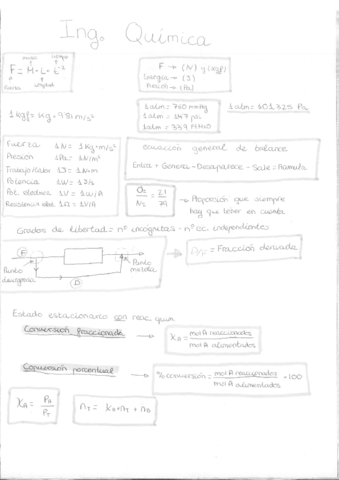 Ing. Química
masa
tiempo
F = M · L · t⁻²
Fuerza
Longitud
F → (N) y (kgf)
Energía → (J)
Presión → (Pa)
1 kgf = kg · 9'81 m/s²
1 atm = 760 mmHg
1 atm = 14'7 psi
1 atm = 33'9 ftH₂O
1 atm = 101.325 Pa
Fuerza 1N = 1Kg·m/s²
Presión 1Pa = 1N/m²
Trabajo/Calor 1J = 1N·m
Potencia 1W = 1J/s
Pot. eléctrica 1V = 1W/A
Resistencia elec. 1Ω = 1V/A
Ecuación general de balance
Entra + Genera - Desaparece - Sale = Acumula
O₂/N₂ = 21/79
→ Proporción que siempre hay que tener en cuenta
Grados de libertad = nº incógnitas - nº ec. independientes
F
Punto desagrega
D
Punto mezcla
D/F = Fracción derivada
Estado estacionario con reac. quím
Conversión fraccionada → XA = mol A reaccionados / mol A alimentados
Conversión porcentual → % conversión = mol A reaccionados / mol A alimentados · 100
XA = PA / PT